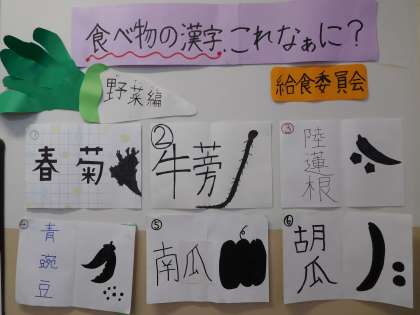 食べ物の漢字、これなぁに？
野菜編
給食委員会
①
春菊
②
牛蒡
③
陸蓮根
④
青豌豆
⑤
南瓜
⑥
胡瓜